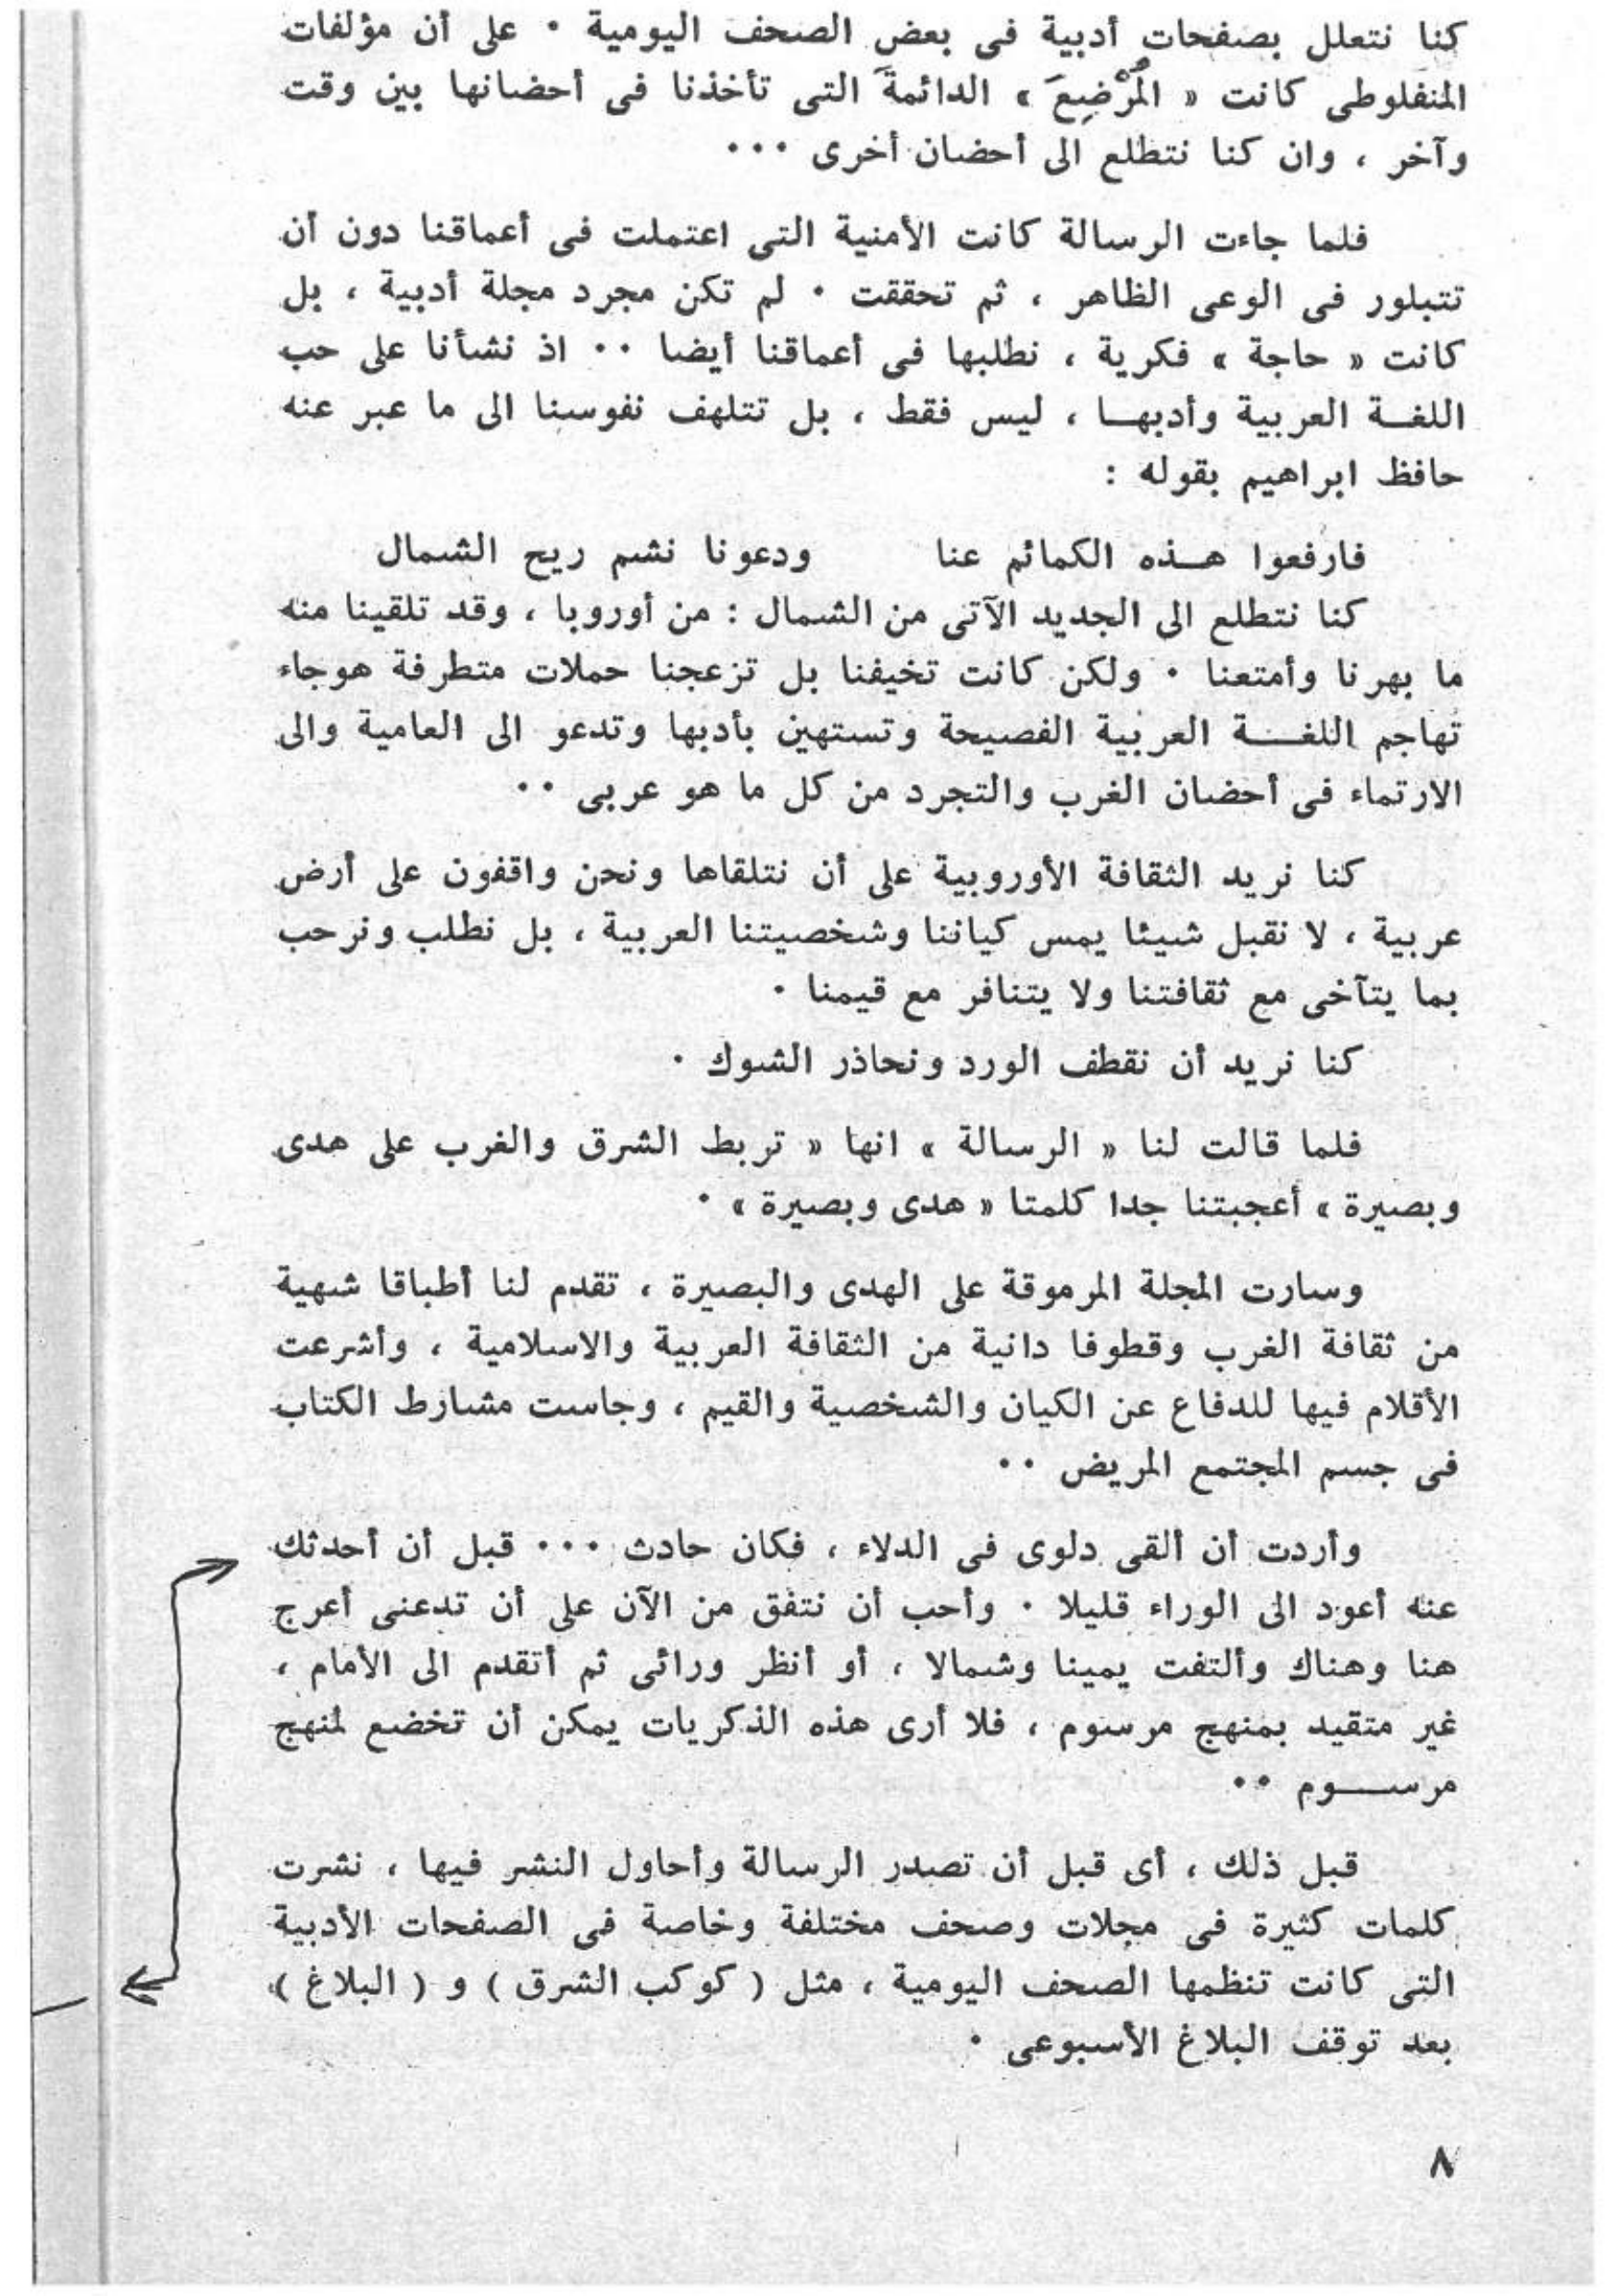 كنا نتعلل بصفحات أدبية فى بعض الصحف اليومية ٠ على أن مؤلفات
المنفلوطى كانت « المُرْضِعَ » الدائمةَ التى تأخذنا فى أحضانها بين وقت
وآخر ، وان كنا نتطلع الى أحضان أخرى ٠٠٠
فلما جاءت الرسالة كانت الأمنية التى اعتملت فى أعماقنا دون أن
تتبلور فى الوعى الظاهر ، ثم تحققت ٠ لم تكن مجرد مجلة أدبية ، بل
كانت « حاجة » فكرية ، نطلبها فى أعماقنا أيضا ٠٠ اذ نشأنا على حب
اللغـــة العربية وأدبهـــا ، ليس فقط ، بل تتلهف نفوسنا الى ما عبر عنه
حافظ ابراهيم بقوله :
فارفعوا هـــذه الكمائم عنا ودعونا نشم ريح الشمال
كنا نتطلع الى الجديد الآتى من الشمال : من أوروبا ، وقد تلقينا منه
ما بهرنا وأمتعنا ٠ ولكن كانت تخيفنا بل تزعجنا حملات متطرفة هوجاء
تهاجم اللغـــــة العربية الفصيحة وتستهين بأدبها وتدعو الى العامية والى
الارتماء فى أحضان الغرب والتجرد من كل ما هو عربى ٠٠
كنا نريد الثقافة الأوروبية على أن نتلقاها ونحن واقفون على أرض
عربية ، لا نقبل شيئا يمس كياننا وشخصيتنا العربية ، بل نطلب ونرحب
بما يتآخى مع ثقافتنا ولا يتنافر مع قيمنا ٠
كنا نريد أن نقطف الورد ونحاذر الشوك ٠
فلما قالت لنا « الرسالة » انها « تربط الشرق والغرب على هدى
وبصيرة » أعجبتنا جدا كلمتا « هدى وبصيرة » ٠
وسارت المجلة المرموقة على الهدى والبصيرة ، تقدم لنا أطباقا شهية
من ثقافة الغرب وقطوفا دانية من الثقافة العربية والاسلامية ، وأشرعت
الأقلام فيها للدفاع عن الكيان والشخصية والقيم ، وجاست مشارط الكتاب
فى جسم المجتمع المريض ٠٠
وأردت أن ألقى دلوى فى الدلاء ، فكان حادث ٠٠٠ قبل أن أحدثك
عنه أعود الى الوراء قليلا ٠ وأحب أن نتفق من الآن على أن تدعنى أعرج
هنا وهناك وألتفت يمينا وشمالا ، أو أنظر ورائى ثم أتقدم الى الأمام ،
غير متقيد بمنهج مرسوم ، فلا أرى هذه الذكريات يمكن أن تخضع لمنهج
مرســـــوم ٠٠
قبل ذلك ، أى قبل أن تصدر الرسالة وأحاول النشر فيها ، نشرت
كلمات كثيرة فى مجلات وصحف مختلفة وخاصة فى الصفحات الأدبية
التى كانت تنظمها الصحف اليومية ، مثل ( كوكب الشرق ) و ( البلاغ )
بعد توقف البلاغ الأسبوعى ٠
٨